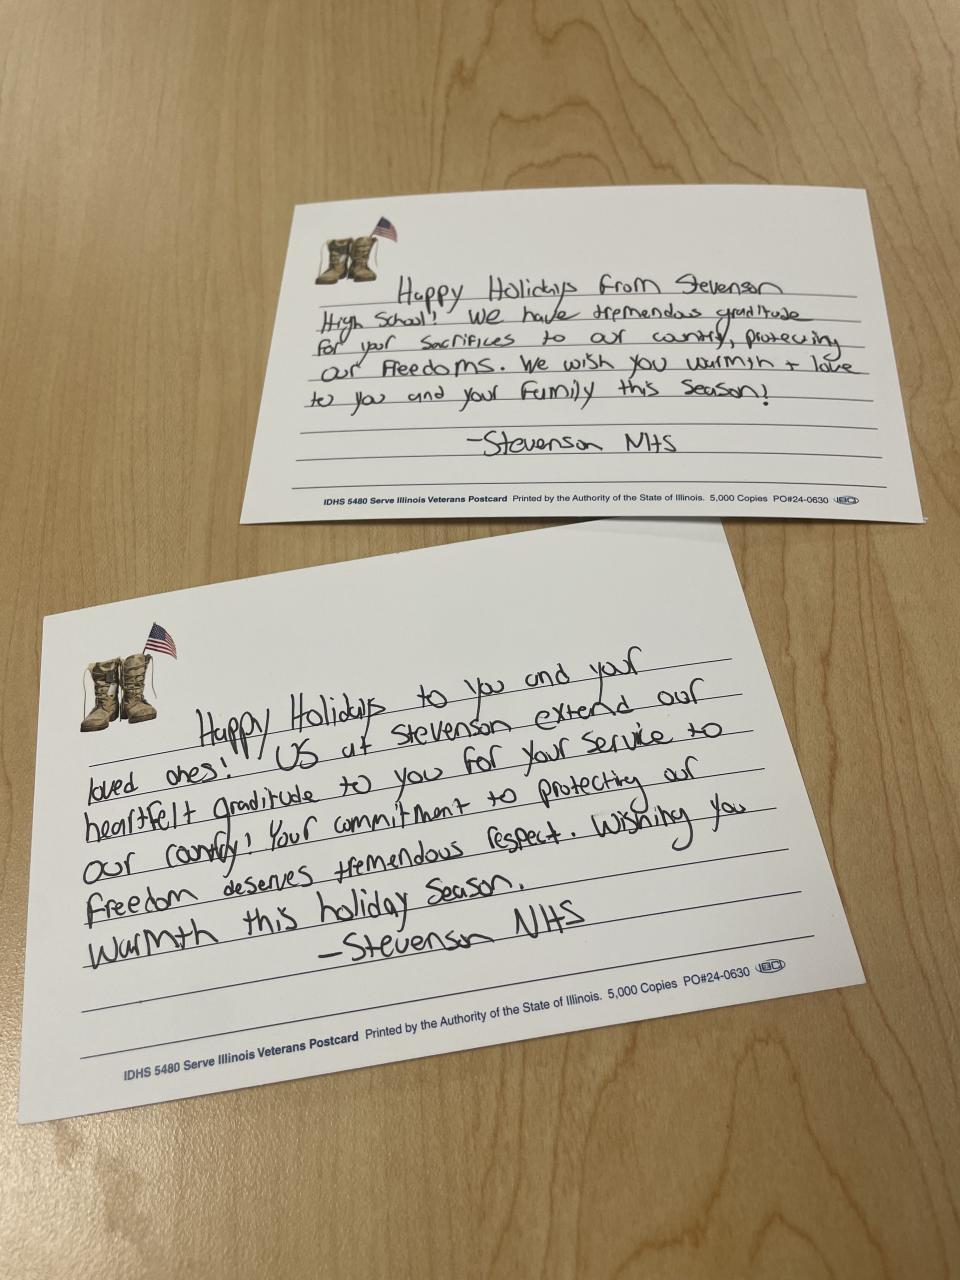 Happy Holidays from Stevenson
High School! We have tremendous graditude
for your sacrifices to our country, protecting
our freedoms. We wish you warmth + love
to you and your family this season!
-Stevenson NHS
IDHS 5480 Serve Illinois Veterans Postcard Printed by the Authority of the State of Illinois. 5,000 Copies PO#24-0630
Happy Holidays to you and your
loved ones! US at Stevenson extend our
heartfelt graditude to you for your service to
our country! Your commitment to protecting our
freedom deserves tremendous respect. Wishing you
warmth this holiday season.
-Stevenson NHS
IDHS 5480 Serve Illinois Veterans Postcard Printed by the Authority of the State of Illinois. 5,000 Copies PO#24-0630